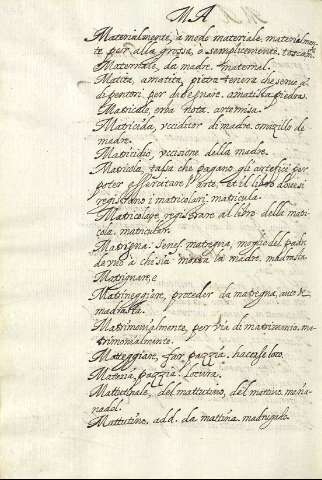 MA
Materialmente, à modo materiale, materialmen-
te per alla grossa, o semplicemente, toscam.
Maternale, da madre. maternal.
Matita, amatita, pietra tenera che serue à i
di pentori per disegnare. amatista piedra.
Matricale, erba nota. artemisa.
Matricida, vcciditor di madre.
madre.
Matricidio, vccisione della madre.
Matricola, tassa che pagano gli artefici per
poter essercitare l'arte, et il libro doue si
registrano i matricolati. matricula.
Matricolare, registrare al libro della matri-
cola. matricular.
Matrigna. Senes. matregna, moglie del padre
de uno à chi sia morta la madre. madrasta.
Matrignare, e
Matrineggiare, proceder da matregna,
madrasta.
Matrimonialmente, per via di matrimonio. ma-
trimonialmente.
Matteggiare, far pazzia, hacerse loco.
Matteria, pazzia. Locura.
Matutinale, del mattutino, del mattino. maña-
nadol.
Mattutino. add. da mattina. madrugado.